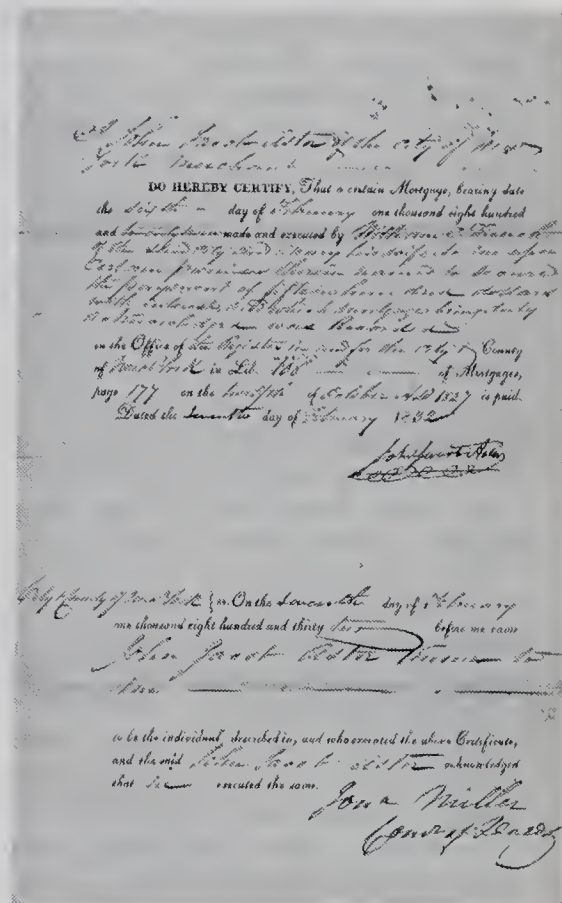 I John Jacob Astor of the city of New
York Merchant
DO HEREBY CERTIFY, That a certain Mortgage, bearing date
the Sixth day of February one thousand eight hundred
and made and executed by William
of the said City and Mary his wife
premises therein to secure
the payment of fifteen hundred dollars
with interest, which Mortgage being
in the Office of the Register in and for the city & County
of New York in Lib. of Mortgages,
page 177 on the of October A.D 1827 is paid.
Dated the Seventh day of February 1832
John Jacob Astor
City & County of New York } ss. On the Seventh day of February
one thousand eight hundred and thirty two before me came
John Jacob Astor known to
me
to be the individual described in, and who executed the above Certificate,
and the said John Jacob Astor acknowledged
that he executed the same.
Jona Miller
Comr of Deeds